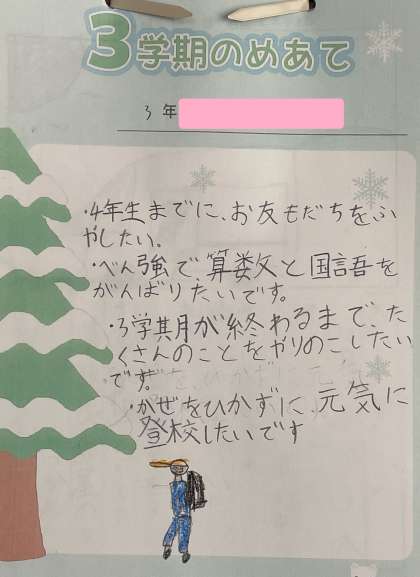 3学期のめあて
3年
・4年生までに、お友もだちをふ
やしたい。
・べん強で算数と国語を
がんばりたいです。
・3学期が終わるまで、た
くさんのことをやりのこしたい
です。
・かぜをひかずに、元気に
登校したいです